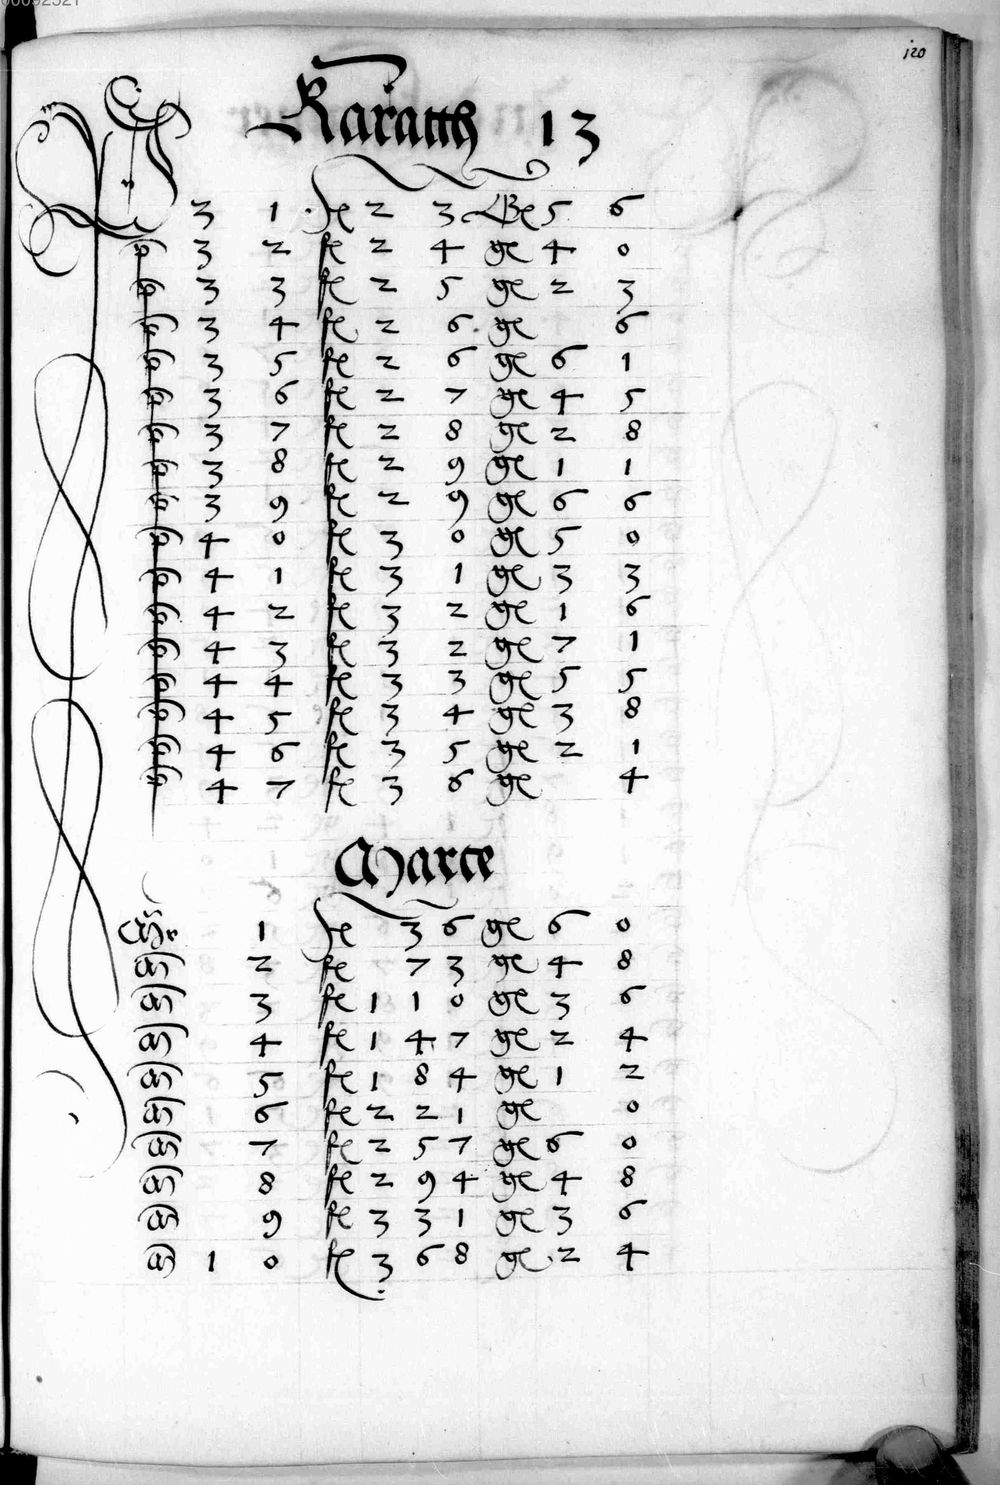 00092521
120
Karatth 13
3 1 fl 2 3 ße 5 6
3 2 fl 2 4 ge 4 0
3 3 fl 2 5 ge 2 3
3 4 fl 2 6 ge 6
3 5 fl 2 6 ge 6 1
3 6 fl 2 7 ge 4 5
3 7 fl 2 8 ge 2 8
3 8 fl 2 9 ge 1 1
3 9 fl 2 9 ge 6 6
4 0 fl 3 0 ge 5 0
4 1 fl 3 1 ge 3 3
4 2 fl 3 2 ge 1 6
4 3 fl 3 2 ge 7 1
4 4 fl 3 3 ge 5 5
4 5 fl 3 4 ge 3 8
4 6 fl 3 5 ge 2 1
4 7 fl 3 6 ge 4
Marce
1 fl 3 6 ge 6 0
2 fl 7 3 ge 4 8
3 fl 1 1 0 ge 3 6
4 fl 1 4 7 ge 2 4
5 fl 1 8 4 ge 1 2
6 fl 2 2 1 ge 0
7 fl 2 5 7 ge 6 0
8 fl 2 9 4 ge 4 8
9 fl 3 3 1 ge 3 6
1 0 fl 3 6 8 ge 2 4